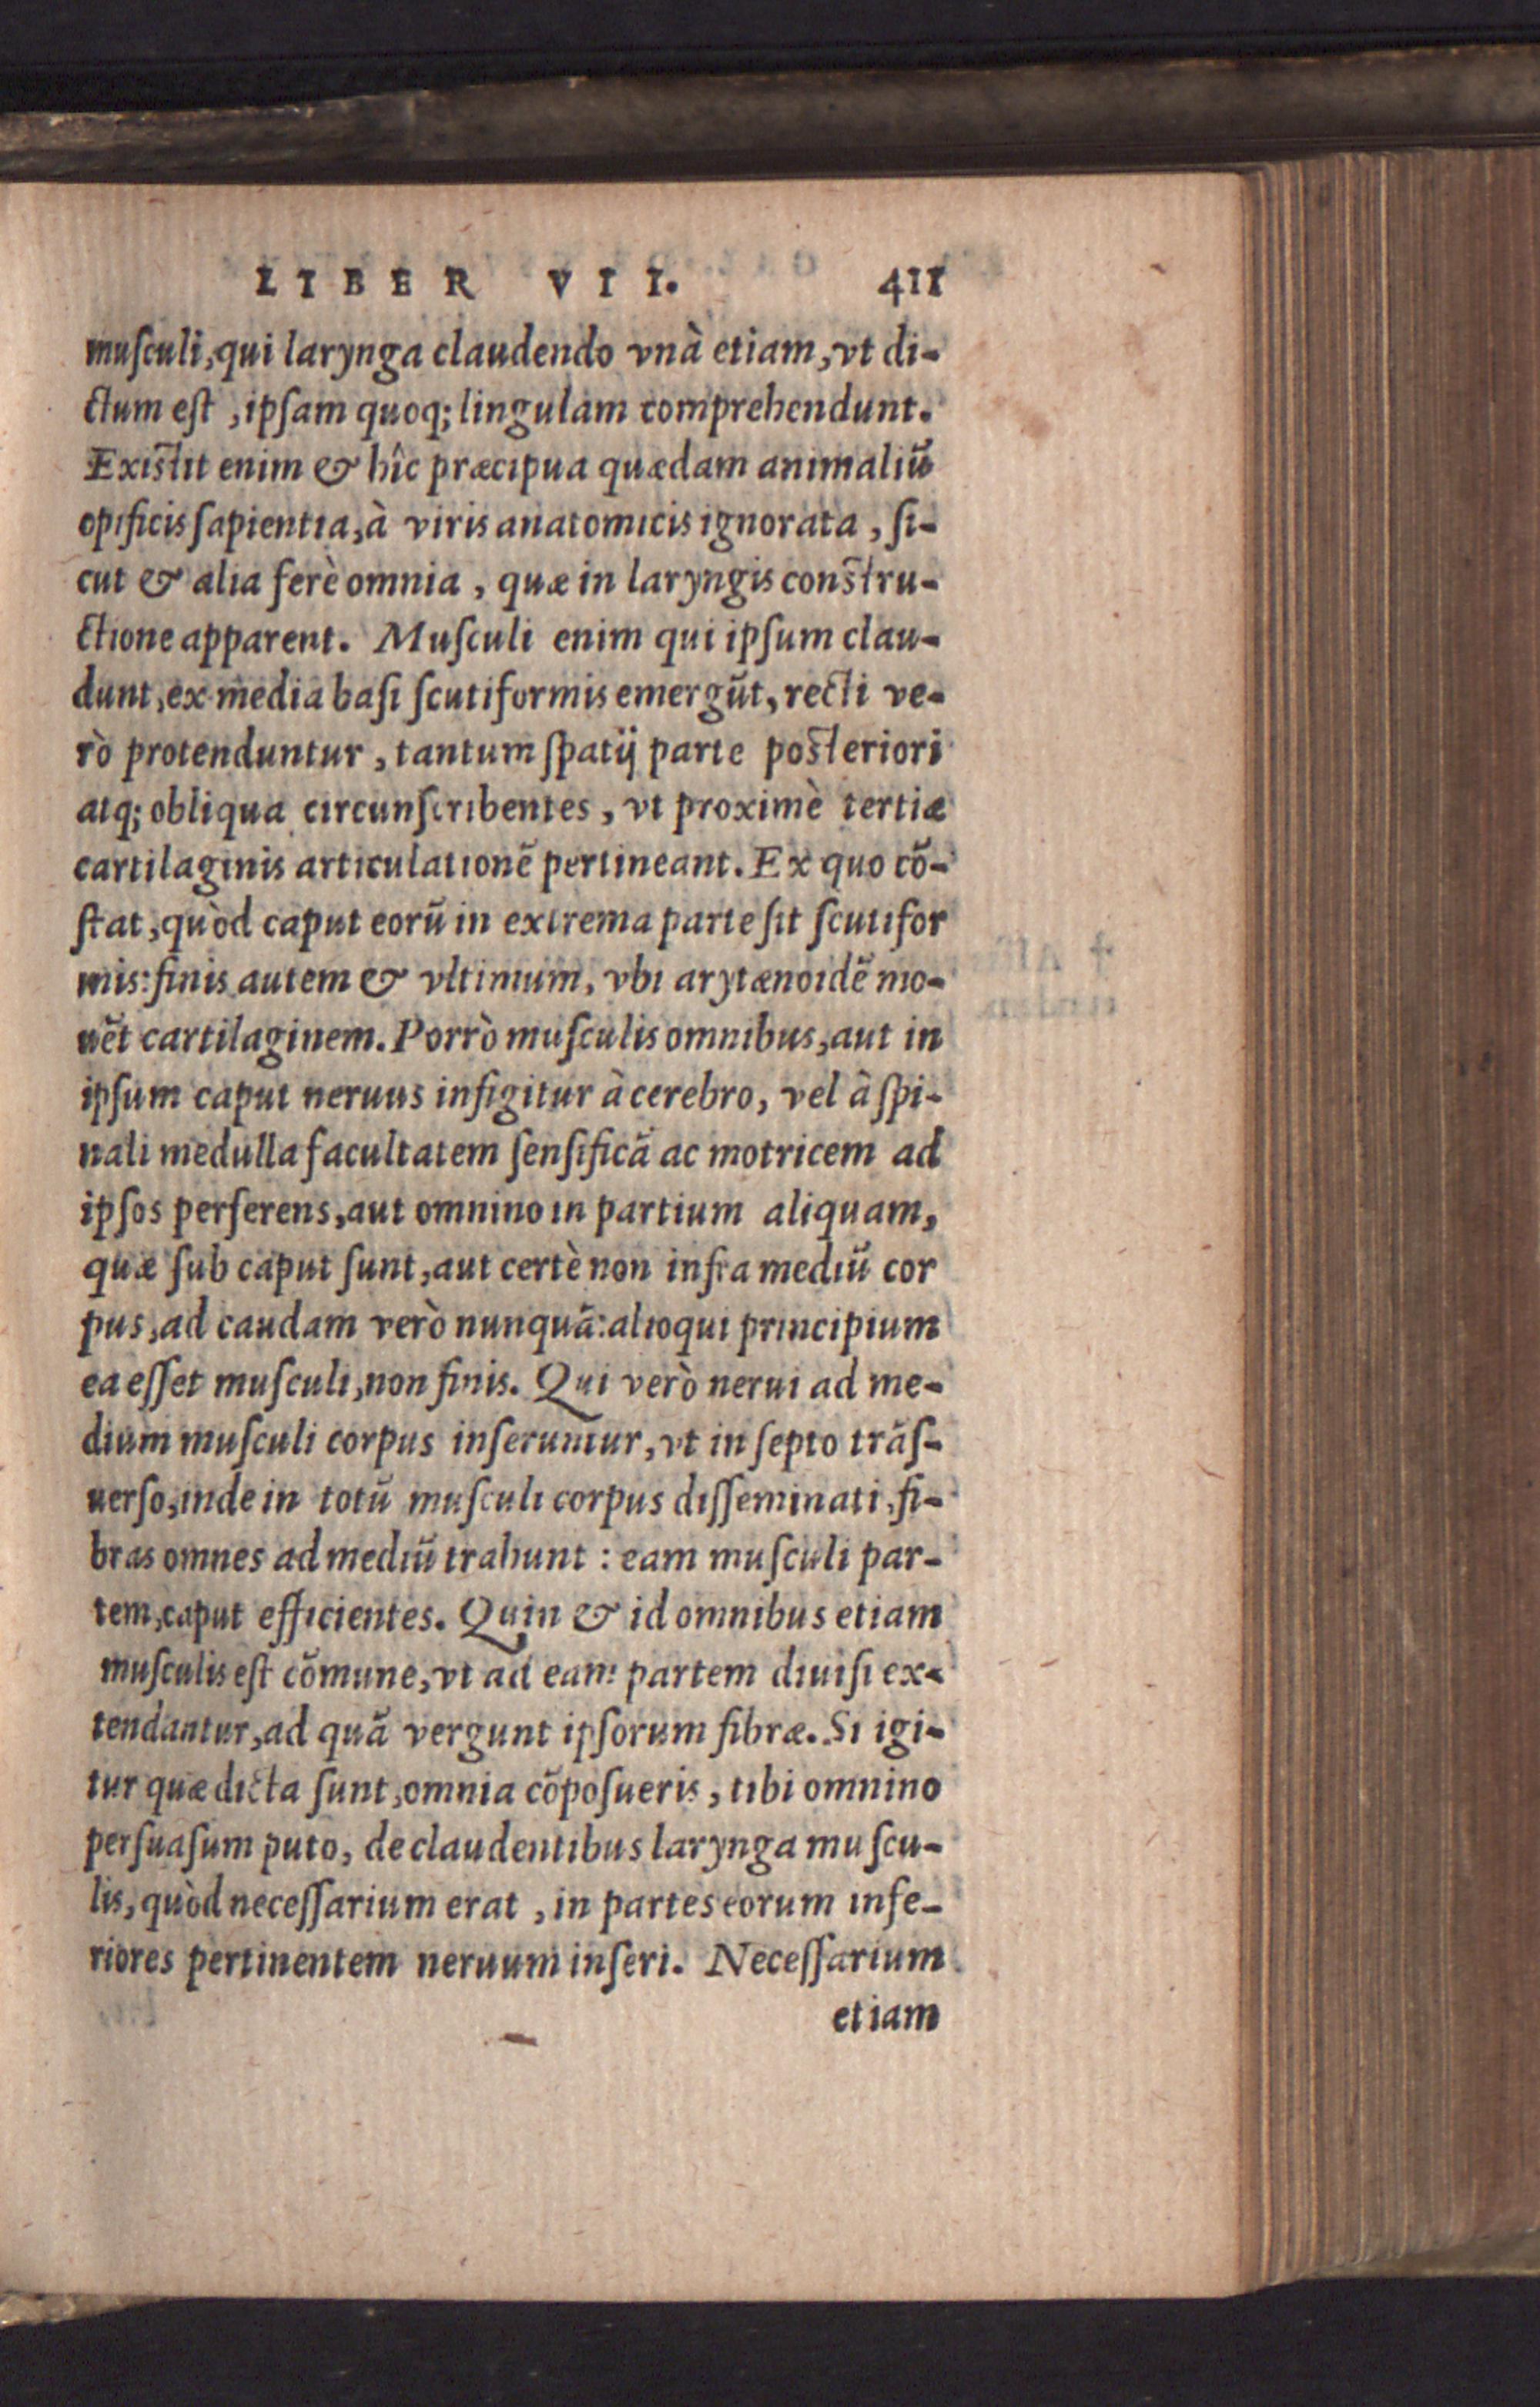 LIBER VII. 411
musculi, qui larynga claudendo vnà etiam, vt di-
ctum est, ipsam quoq; lingulam comprehendunt.
Existit enim & hîc præcipua quædam animaliũ
opificis sapientia, à viris anatomicis ignorata, si-
cut & alia ferè omnia, quæ in laryngis constru-
ctione apparent. Musculi enim qui ipsum clau-
dunt, ex media basi scutiformis emergũt, recti ve-
rò protenduntur, tantum spatij parte posteriori
atq; obliqua circunscribentes, vt proximè tertiæ
cartilaginis articulationẽ pertineant. Ex quo cõ-
stat, quòd caput eorũ in extrema parte sit scutifor
mis: finis autem & vltimum, vbi arytænoidẽ mo-
uẽt cartilaginem. Porrò musculis omnibus, aut in
ipsum caput neruus infigitur à cerebro, vel à spi-
nali medulla facultatem sensificã ac motricem ad
ipsos perferens, aut omnino in partium aliquam,
quæ sub caput sunt, aut certè non infra mediũ cor
pus, ad caudam verò nunquã: alioqui principium
ea esset musculi, non finis. Qui verò nerui ad me-
dium musculi corpus inseruntur, vt in septo trãs-
uerso, inde in totũ musculi corpus disseminati, fi-
bras omnes ad mediũ trahunt: eam musculi par-
tem, caput efficientes. Quin & id omnibus etiam
musculis est cõmune, vt ad eam partem diuisi ex-
tendantur, ad quã vergunt ipsorum fibræ. Si igi-
tur quæ dicta sunt, omnia cõposueris, tibi omnino
persuasum puto, de claudentibus larynga muscu-
lis, quòd necessarium erat, in partes eorum infe-
riores pertinentem neruum inseri. Necessarium
etiam